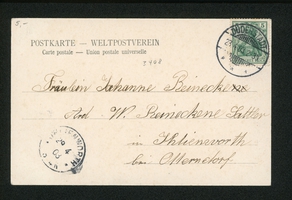 5.-
POSTKARTE - WELTPOSTVEREIN
Carte postale - Union postale universelle
1908
Fräulein Johanne Beineckens
Ard. W. Steineckene Sattler
in Ihlienworth
bei Otterndorf